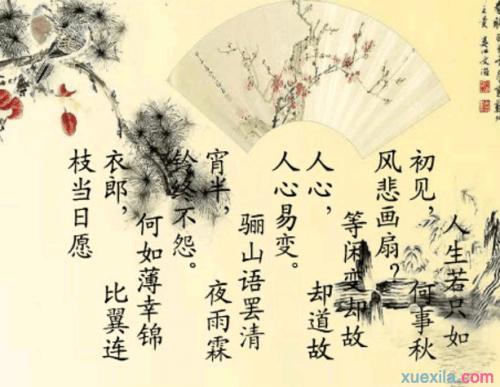 人生若只如
初见， 何事秋
风悲画扇？
等闲变却故
人心， 却道故
人心易变。
骊山语罢清
宵半， 夜雨霖
铃终不怨。
何如薄幸锦
衣郎， 比翼连
枝当日愿
xuexila.com